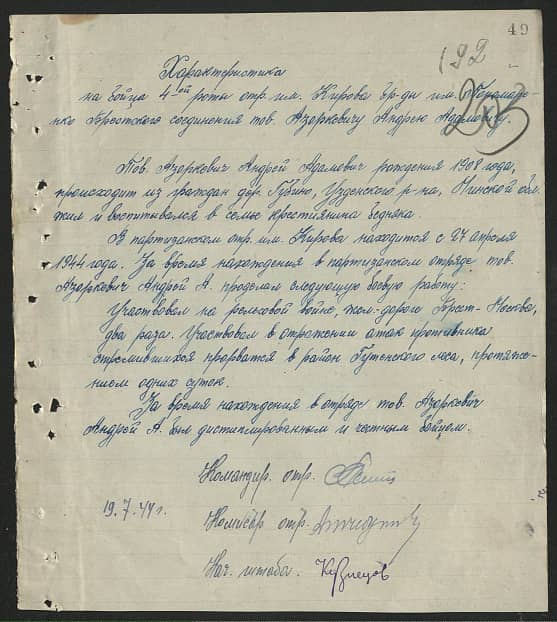 49
192
203
Характеристика
на бойца 4-ой роты отр. им. Кирова бр-ды им. Пономаре-
нко Брестского соединения тов. Азаркевичу Андрею Адамовичу.
Тов. Азаркевич Андрей Адамович рождения 1908 года,
происходит из граждан дер. Губино, Узденского р-на, Минской обл.
жил и воспитывался в семье крестьянина бедняка.
В партизанском отр. им. Кирова находится с 24 апреля
1944 года. За время нахождения в партизанском отряде тов.
Азаркевич Андрей А. проделал следующую боевую работу:
Участвовал на рельсовой войне, жел.-дороге Брест-Москва,
два раза. Участвовал в отражении атак противника
стремившихся прорватся в район Гутенского леса, протяже-
нием одних суток.
За время нахождения в отряде тов. Азаркевич
Андрей А. был дистиплированным и честным бойцом.
Командир. отр.
19.7.44 г.
Комисар отр.
Нач. штаба. Кузнецов